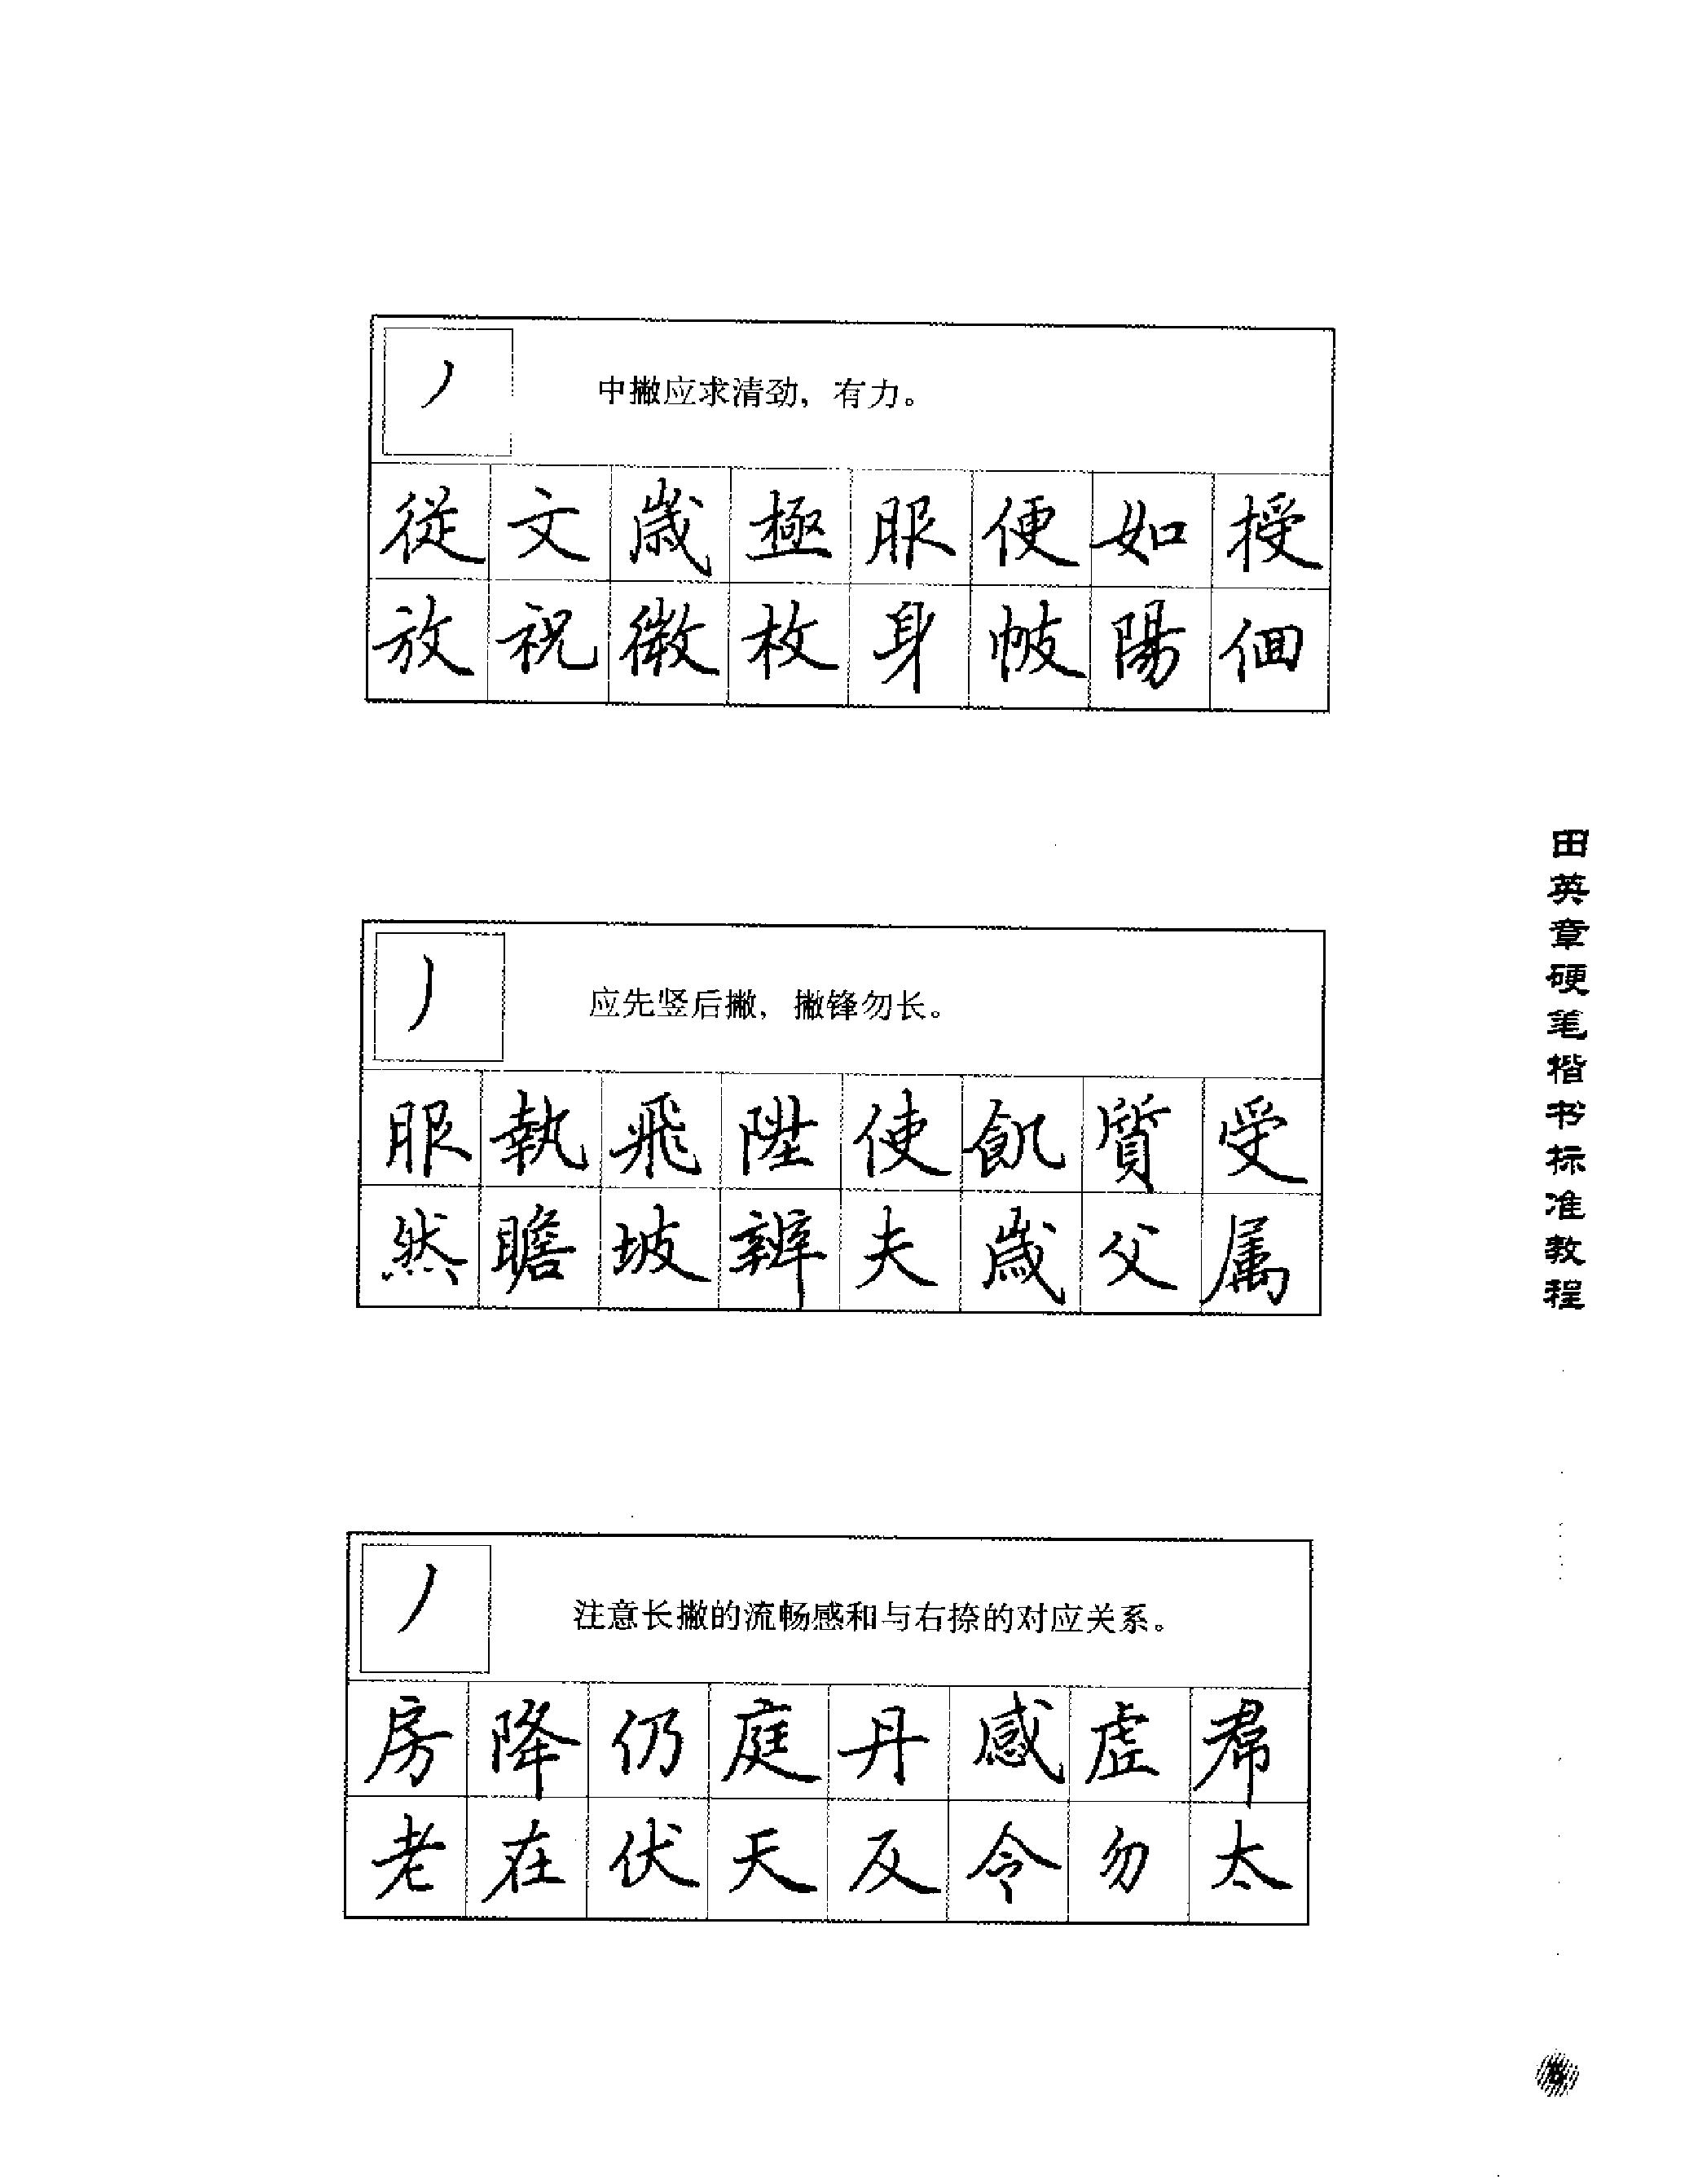 丿
中撇应求清劲，有力。
從文歲極服便如授
放祝徵枚身帔陽佪
丿
应先竖后撇，撇锋勿长。
服執飛陞使飢質受
然瞻坡辨夫歲父属
丿
注意长撇的流畅感和与右捺的对应关系。
房降仍庭丹感虚帬
老在伏天反令勿太
田英章硬笔楷书标准教程